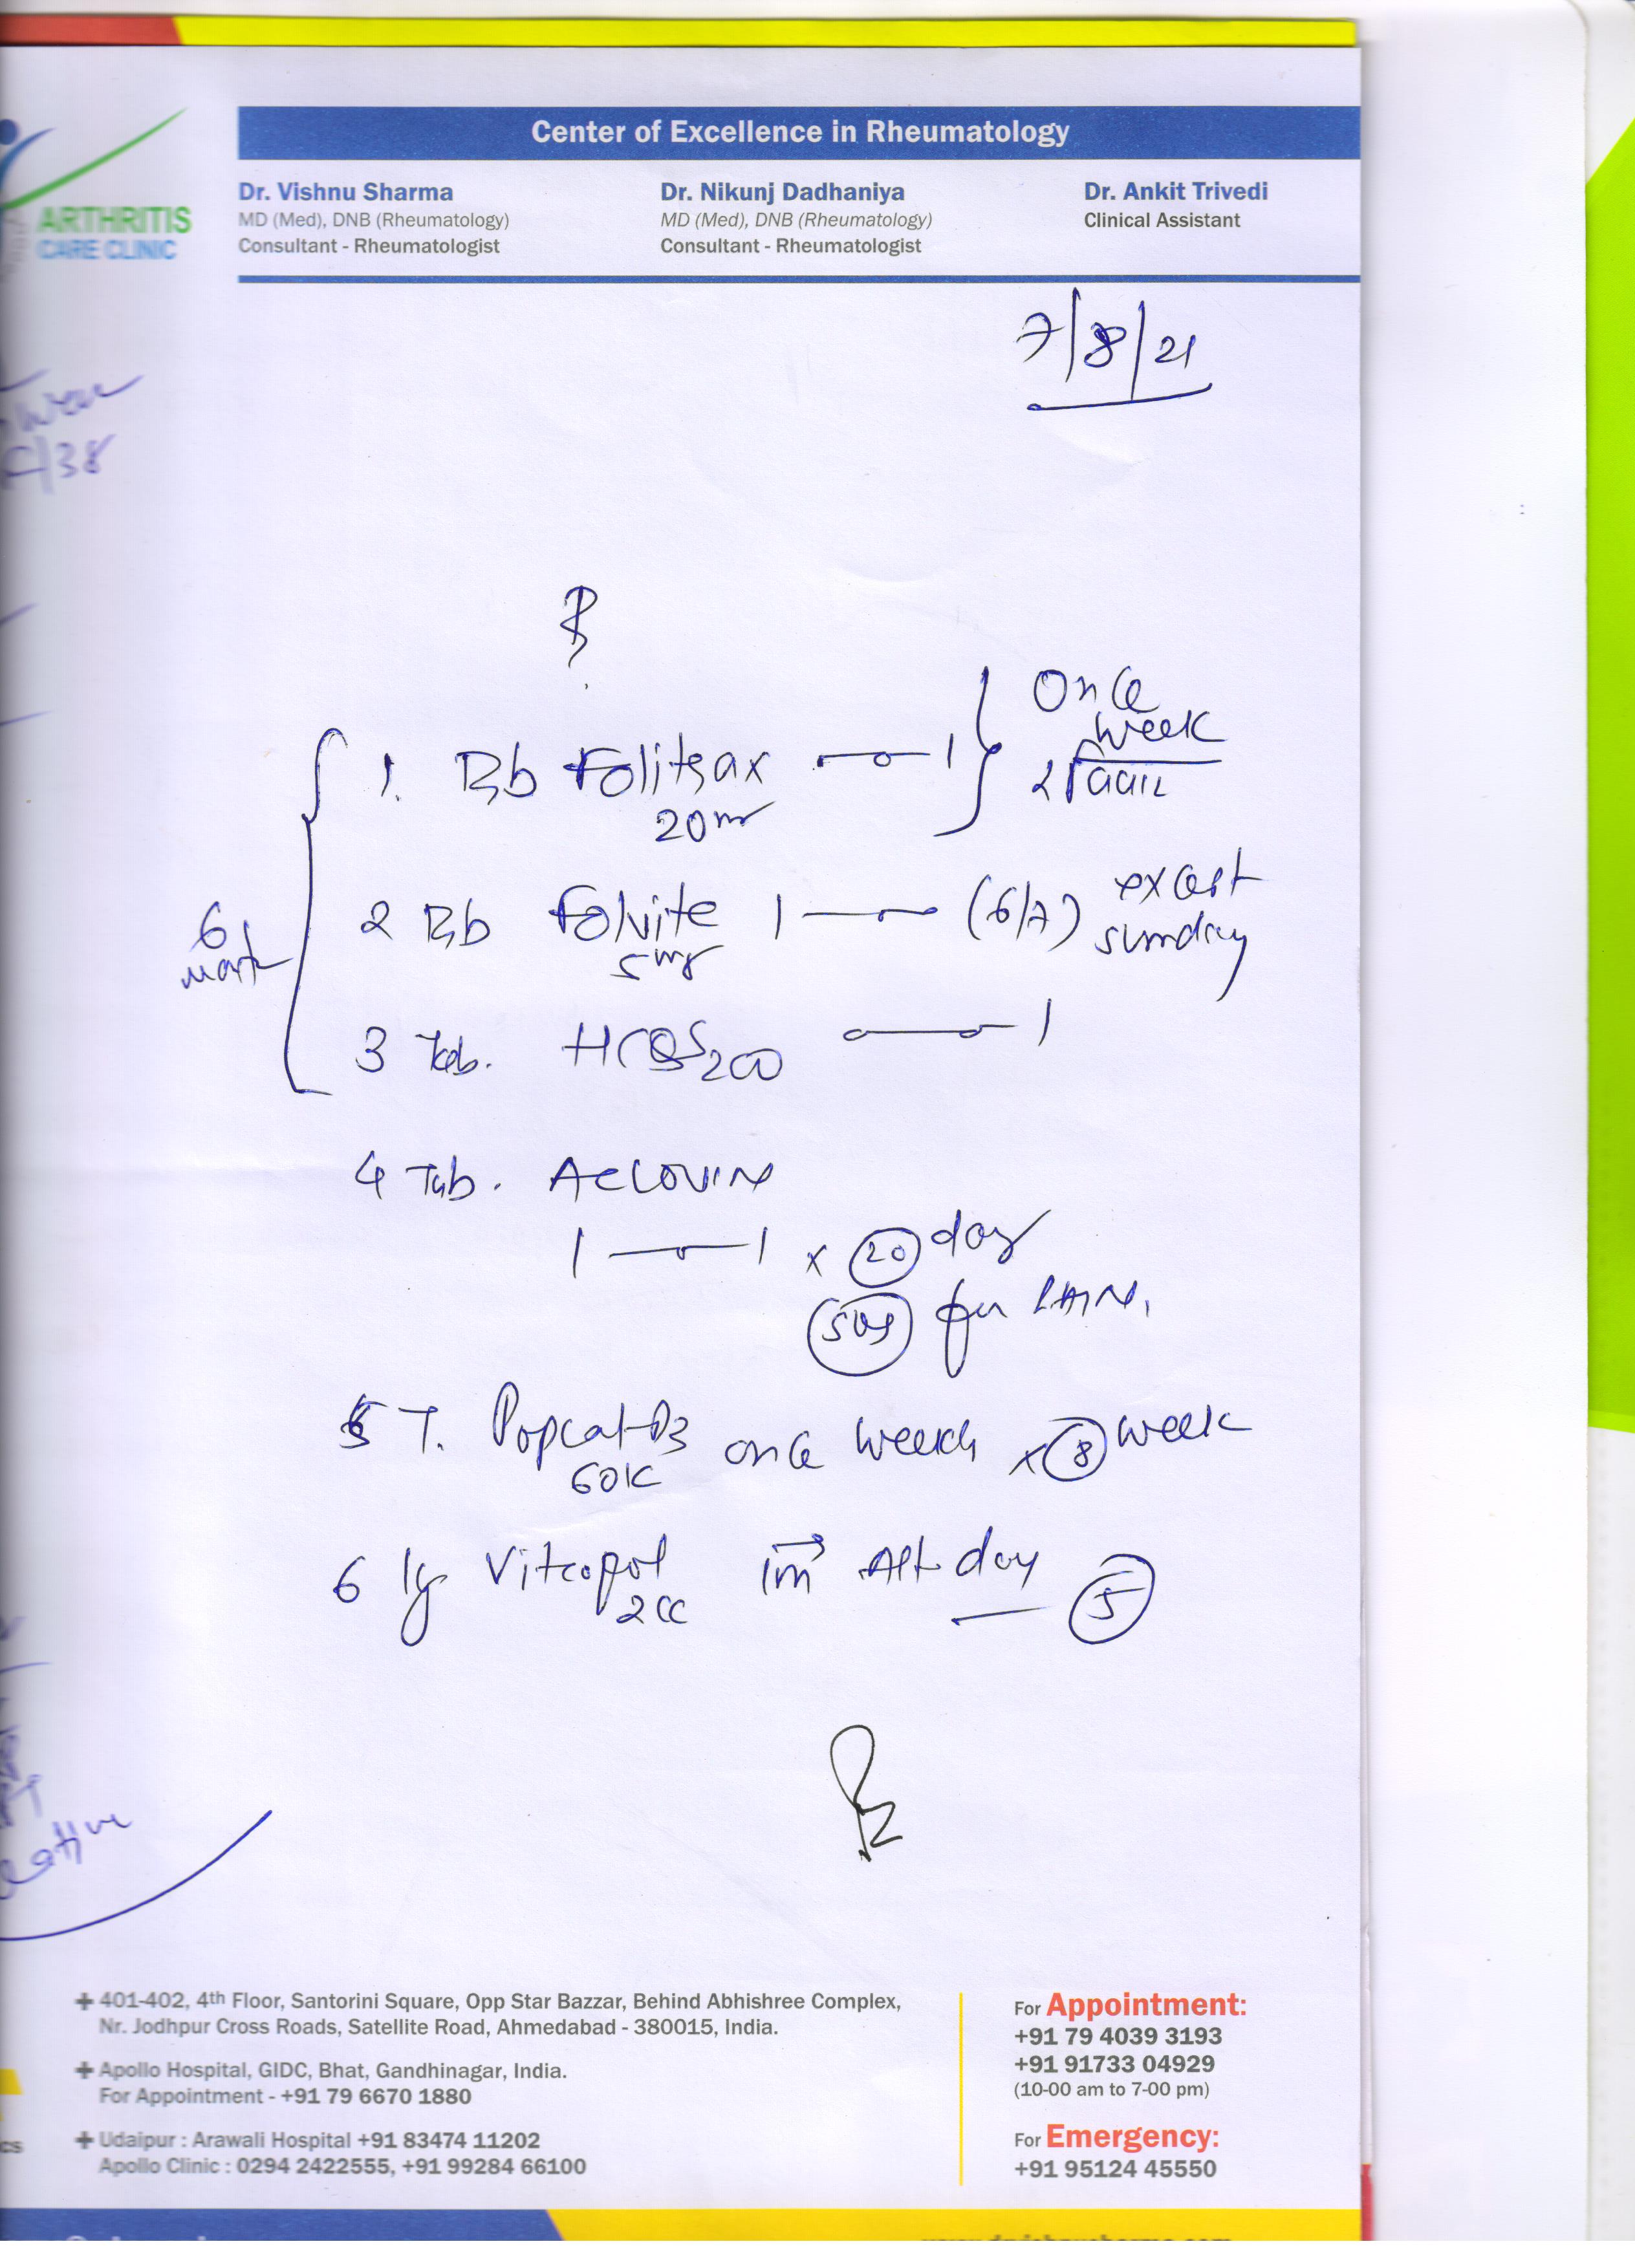 Center of Excellence in Rheumatology
ARTHRITIS
CARE CLINIC
Dr. Vishnu Sharma
MD (Med), DNB (Rheumatology)
Consultant - Rheumatologist
Dr. Nikunj Dadhaniya
MD (Med), DNB (Rheumatology)
Consultant - Rheumatologist
Dr. Ankit Trivedi
Clinical Assistant
7/8/21
/38
1. Tab Folitrax 1 } Once
20 mg week
2 Tab Folvite 1 (6/7) except
5 mg sunday
6
3 Tab. HCQS 200 1
4 Tab. 
1 1 x 20 day
SOS for PAIN.
5 T. D3 once week x 8 week
60K
6 Vitcopol IM Alt day 5
2cc
+ 401-402, 4th Floor, Santorini Square, Opp Star Bazzar, Behind Abhishree Complex,
Nr. Jodhpur Cross Roads, Satellite Road, Ahmedabad - 380015, India.
+ Apollo Hospital, GIDC, Bhat, Gandhinagar, India.
For Appointment - +91 79 6670 1880
+ Udaipur : Arawali Hospital +91 83474 11202
Apollo Clinic : 0294 2422555, +91 99284 66100
For Appointment:
+91 79 4039 3193
+91 91733 04929
(10-00 am to 7-00 pm)
For Emergency:
+91 95124 45550